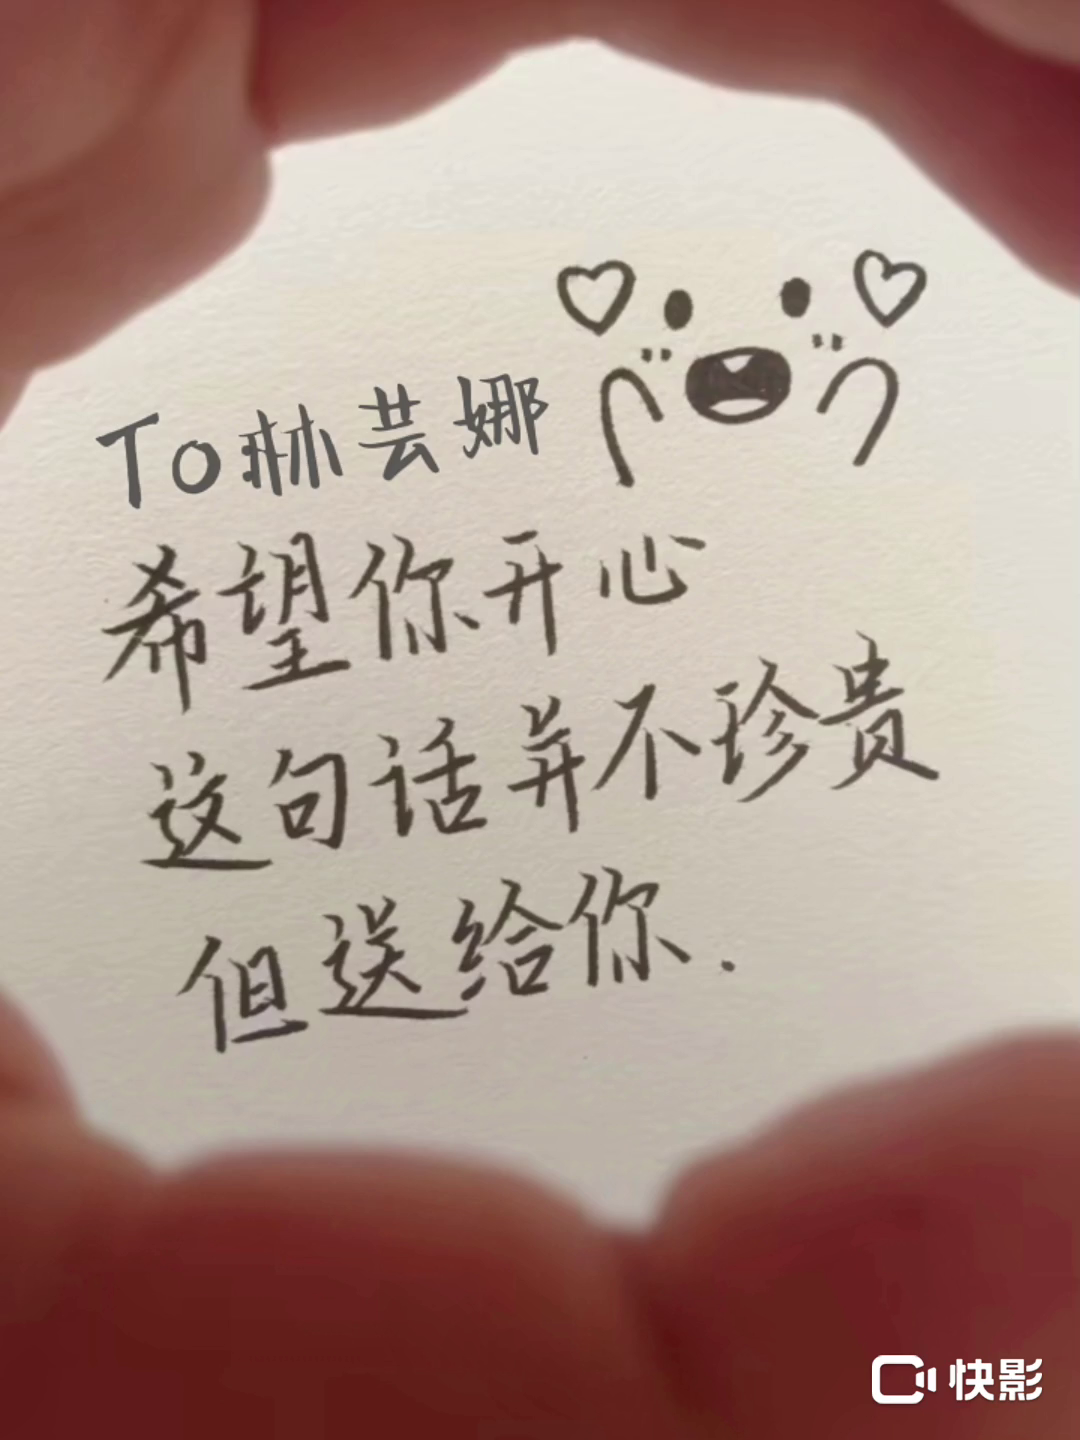 To林芸娜
希望你开心
这句话并不珍贵
但送给你.
快影